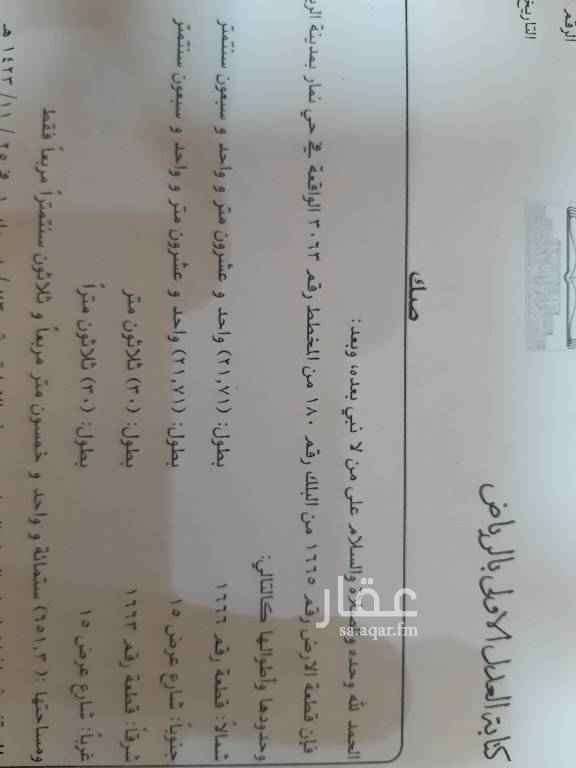 الرقم
التاريخ
كتابة العدل الاولى بالرياض
صك
الحمد لله وحده والسلام على من لا نبي بعده، وبعد:
فإن قطعة الارض رقم ١٦٦٥ من البلك رقم ١٨٠ من المخطط رقم ٣٠٦٣ الواقعة في حي نمار بمدينة
وحدودها وأطوالها كالتالي:
شمالاً: قطعة رقم ١٦٦٦ بطول: (٢١,٧١) واحد و عشرون متر و واحد و سبعون سنتمتر
جنوبياً: شارع عرض ١٥ بطول: (٢١,٧١) واحد و عشرون متر و واحد و سبعون سنتمتر
شرقاً: قطعة رقم ١٦٦٣ بطول: (٣٠) ثلاثون متر
غرباً: شارع عرض ١٥ بطول: (٣٠) ثلاثون متراً
ومساحتها: (٦٥١,٣) ستمائة و واحد و خمسون متر مربعاً و ثلاثون سنتمتراً مربعاً فقط
١٤٢٣/١١/٢٥ هـ
عقار
sa.aqar.fm